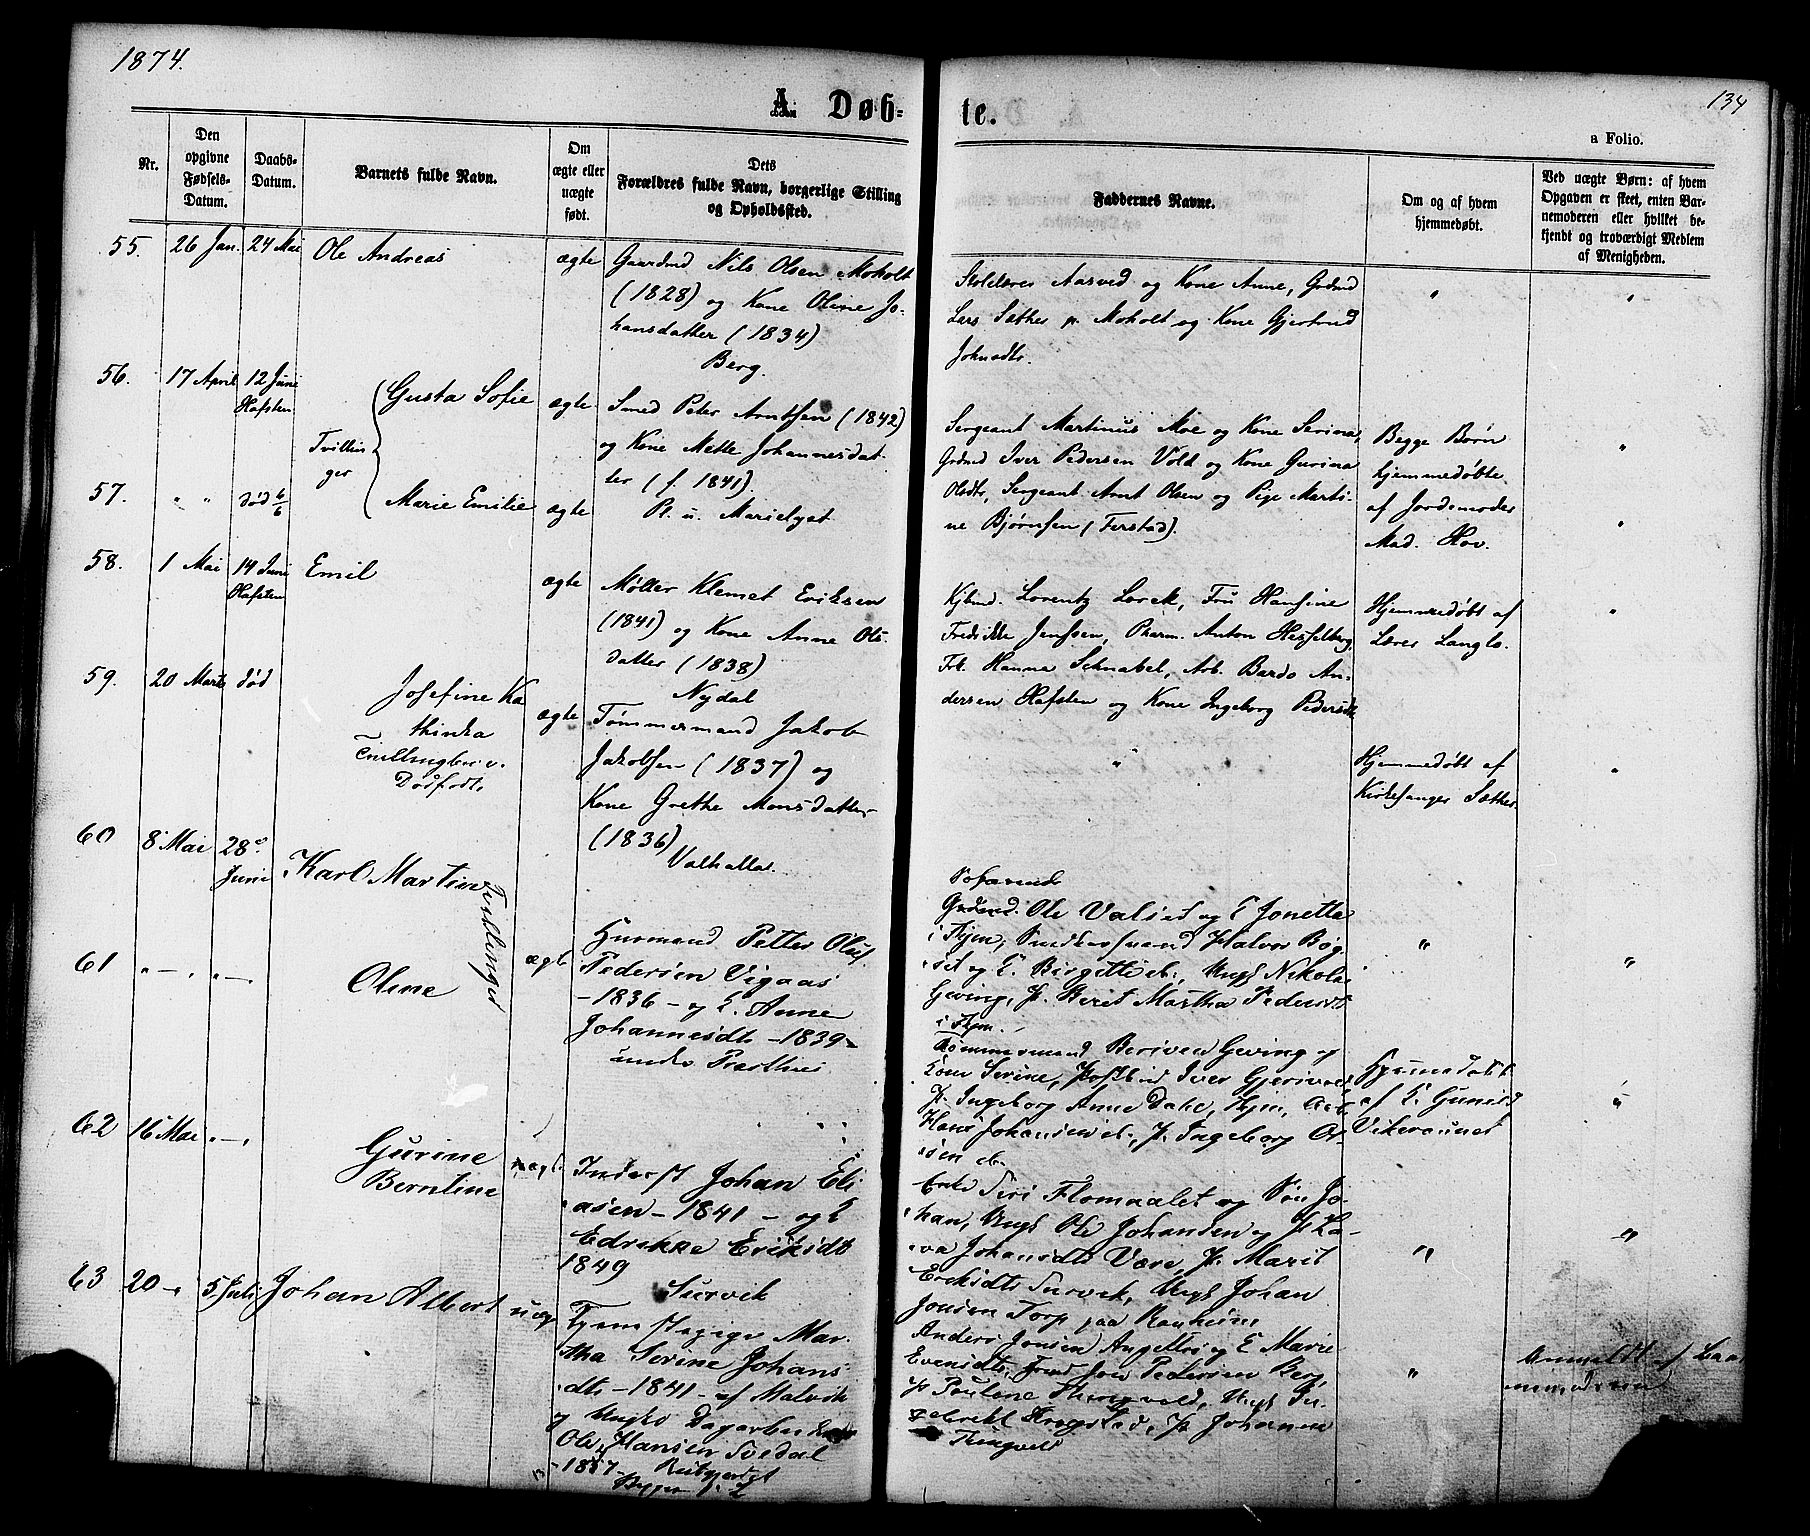 1874.
134
A. Døb=
te.
a Folio.
Nr.
Den opgivne Fødsels-Datum.
Daabs-Datum.
Barnets fulde Navn.
Om ægte eller uægte født.
Dets Forældres fulde Navn, borgerlige Stilling og Opholdssted.
Faddernes Navne.
Om og af hvem hjemmedøbt.
Ved uægte Børn: af hvem Opgaven er skeet, enten Barnemoderen eller hvilket bekjendt og troværdigt Medlem af Menigheden.
55. 26 Jan. 24 Mai Ole Andreas ægte
Gaardmd Nils Olsen Moholt
(1828) og Kone Oline Jo-
hansdatter (1834)
Berg.
Skolelærer Aasved og Kone Anne, Grdmd
Lars Sæther p. Moholt og Kone Gjertrud
Johnsdtr.
"
"
56. 17 April 12 Juni
Hafsten
Tvillin
ger
Gusta Sofie ægte
Smed Peter Arntsen (1842)
og Kone Mette Johannesdat-
ter (f. 1841).
Pl. u. Marielyst
Sergeant Martinus Moe og Kone Serina,
Grdmd Iver Pedersen Vold og Kone Gurina
Olsdtr, Sergeant Arnt Olsen og Pige Marti-
ne Bjørnsen (Ferstad).
Begge Børn
hjemmedøbte
af Jordemoder
Mad. Hov.
"
57. " " død 6/6
Marie Emilie ægte
"
58. 1 Mai 14 Juni
Hafsten
Emil ægte
Møller Klemet Eriksen
(1841) og Kone Anne Ols-
datter (1838)
Nydal
Kjbmd. Lorentz Lorck, Fru Hansine
Fredrikke Jenssen, Pharm. Anton Hesselberg,
Frk. Hanna Schnabel, Arb. Bardo An-
dersen Hafsten og Kone Ingeborg Pedersdtr
Hjemmedøbt af
Lærer Langlo.
"
59. 20 Marts død
Josefine Ka
thinka
Tvillingbror v.
Dødfødt.
ægte
Tømmermand Jakob
Jakobsen (1837) og
Kone Grethe Monsdatter
(1836)
Valhalla.
"
Hjemmedøbt af
Kirkesanger Sæther
"
60 8 Mai 28de
Juni
Karl Martin
Tvillinger
ægte
Husmand Petter Oluf
Pedersen Vigaas
- 1836 - og K. Anne
Johannesdtr - 1839 -
under Præsthus
Grdmd. Ole Valset og K Jonetta
i Hjem, Halvor Bøg
set og K. Birgitte ib., Ungk Nikolai
Geving, P. Berit Martha Pedersdt
i Hjem.
"
"
61 " - " " - "
Oline
Tømmermand Geving og
Kone Serine, Iver Gjervan
P. Ingeborg Anne Dahl, Hjem, Arb.
Hans Johansen ib., P. Ingeborg Ol-
sen ib.
Hjemmedøbt
af K. Gunild
Vikeraunet
"
62 16 Mai " - "
Gurine
Berntine
ægte
Inderst Johan Eli
asen - 1841 - og K
Edrikke Eriksdt
1849
Survik
Enke Siri Flomaalet og Søn Jo-
han, Ungk Ole Johansen og P. La-
va Johansdtr Være, P. Marit
Eriksdtr Survik, Ungk Johan
Jonsen Torp paa Ranheim
"
"
63 20 - " 5 Juli Johan Albert uægte
Tjenestepige Mar-
tha Serine Johans
dtr - 1841 - af Malvik
og Ungk Dagarbeider
Ole Hansen Svedal
- 1857
Anders Jonsen og K Marie
Evensdtr, Jon Pedersen Berg,
P. Pauline Thingvold, Ungk In-
gebrikt Krogstad, P. Johanna
Thingvold
"
Anmeldt af Bar
nemoderen